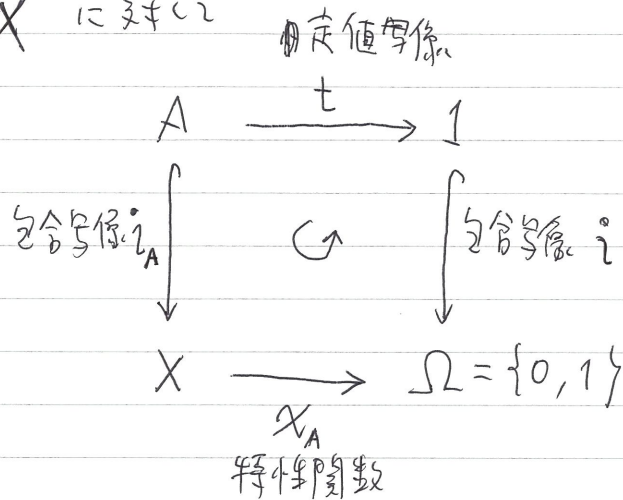 X に対して
定値写像
t
A 1
包含写像 i_A 包含写像 i
X Ω = {0, 1}
χ_A
特性関数